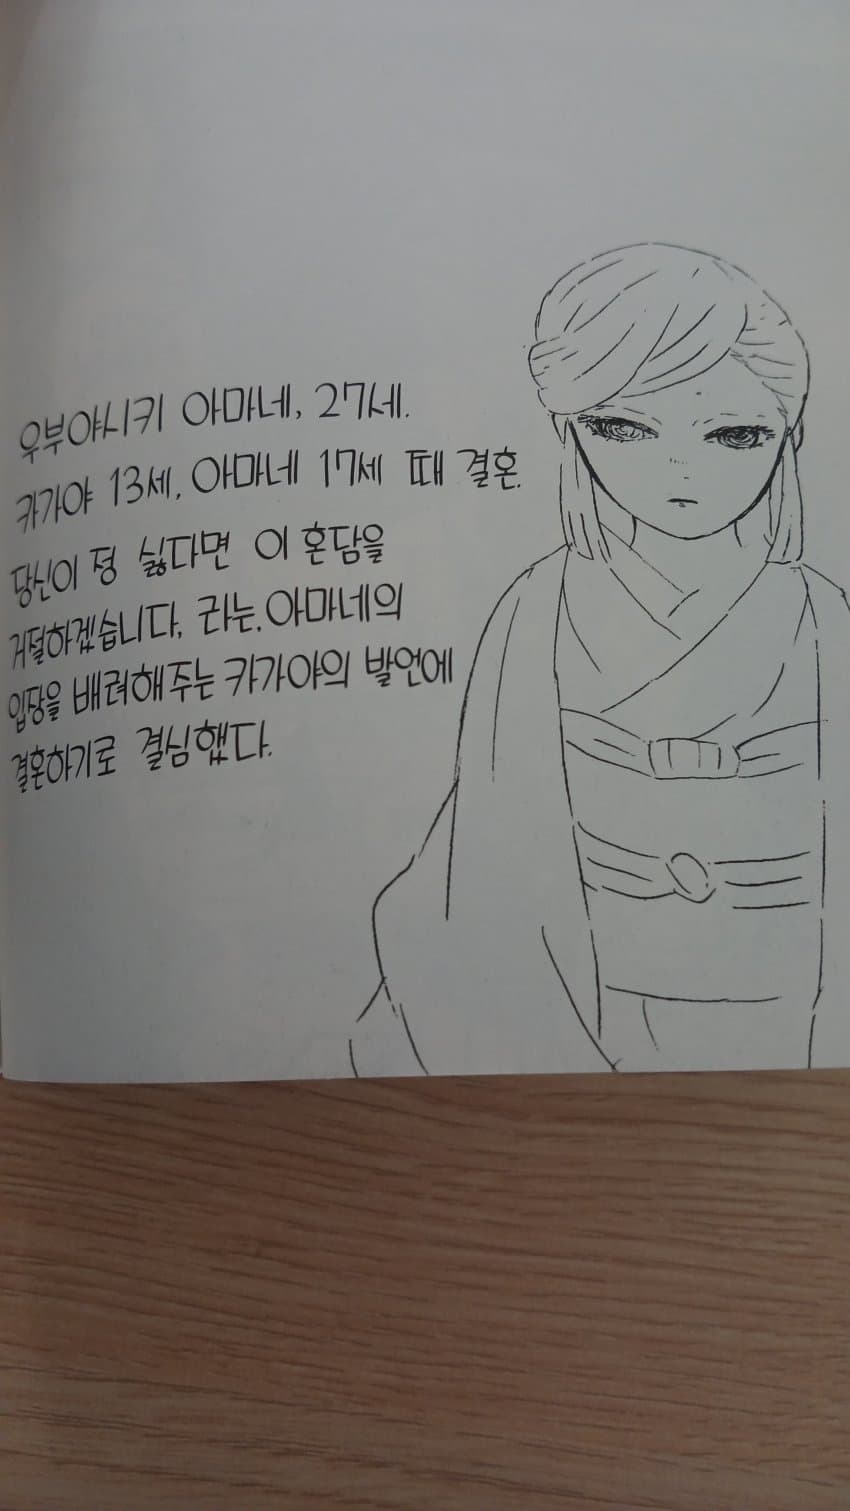 우부야시키 아마네, 27세.
카가야 13세, 아마네 17세 때 결혼.
당신이 정 싫다면 이 혼담을
거절하겠습니다, 라는, 아마네의
입장을 배려해주는 카가야의 발언에
결혼하기로 결심했다.